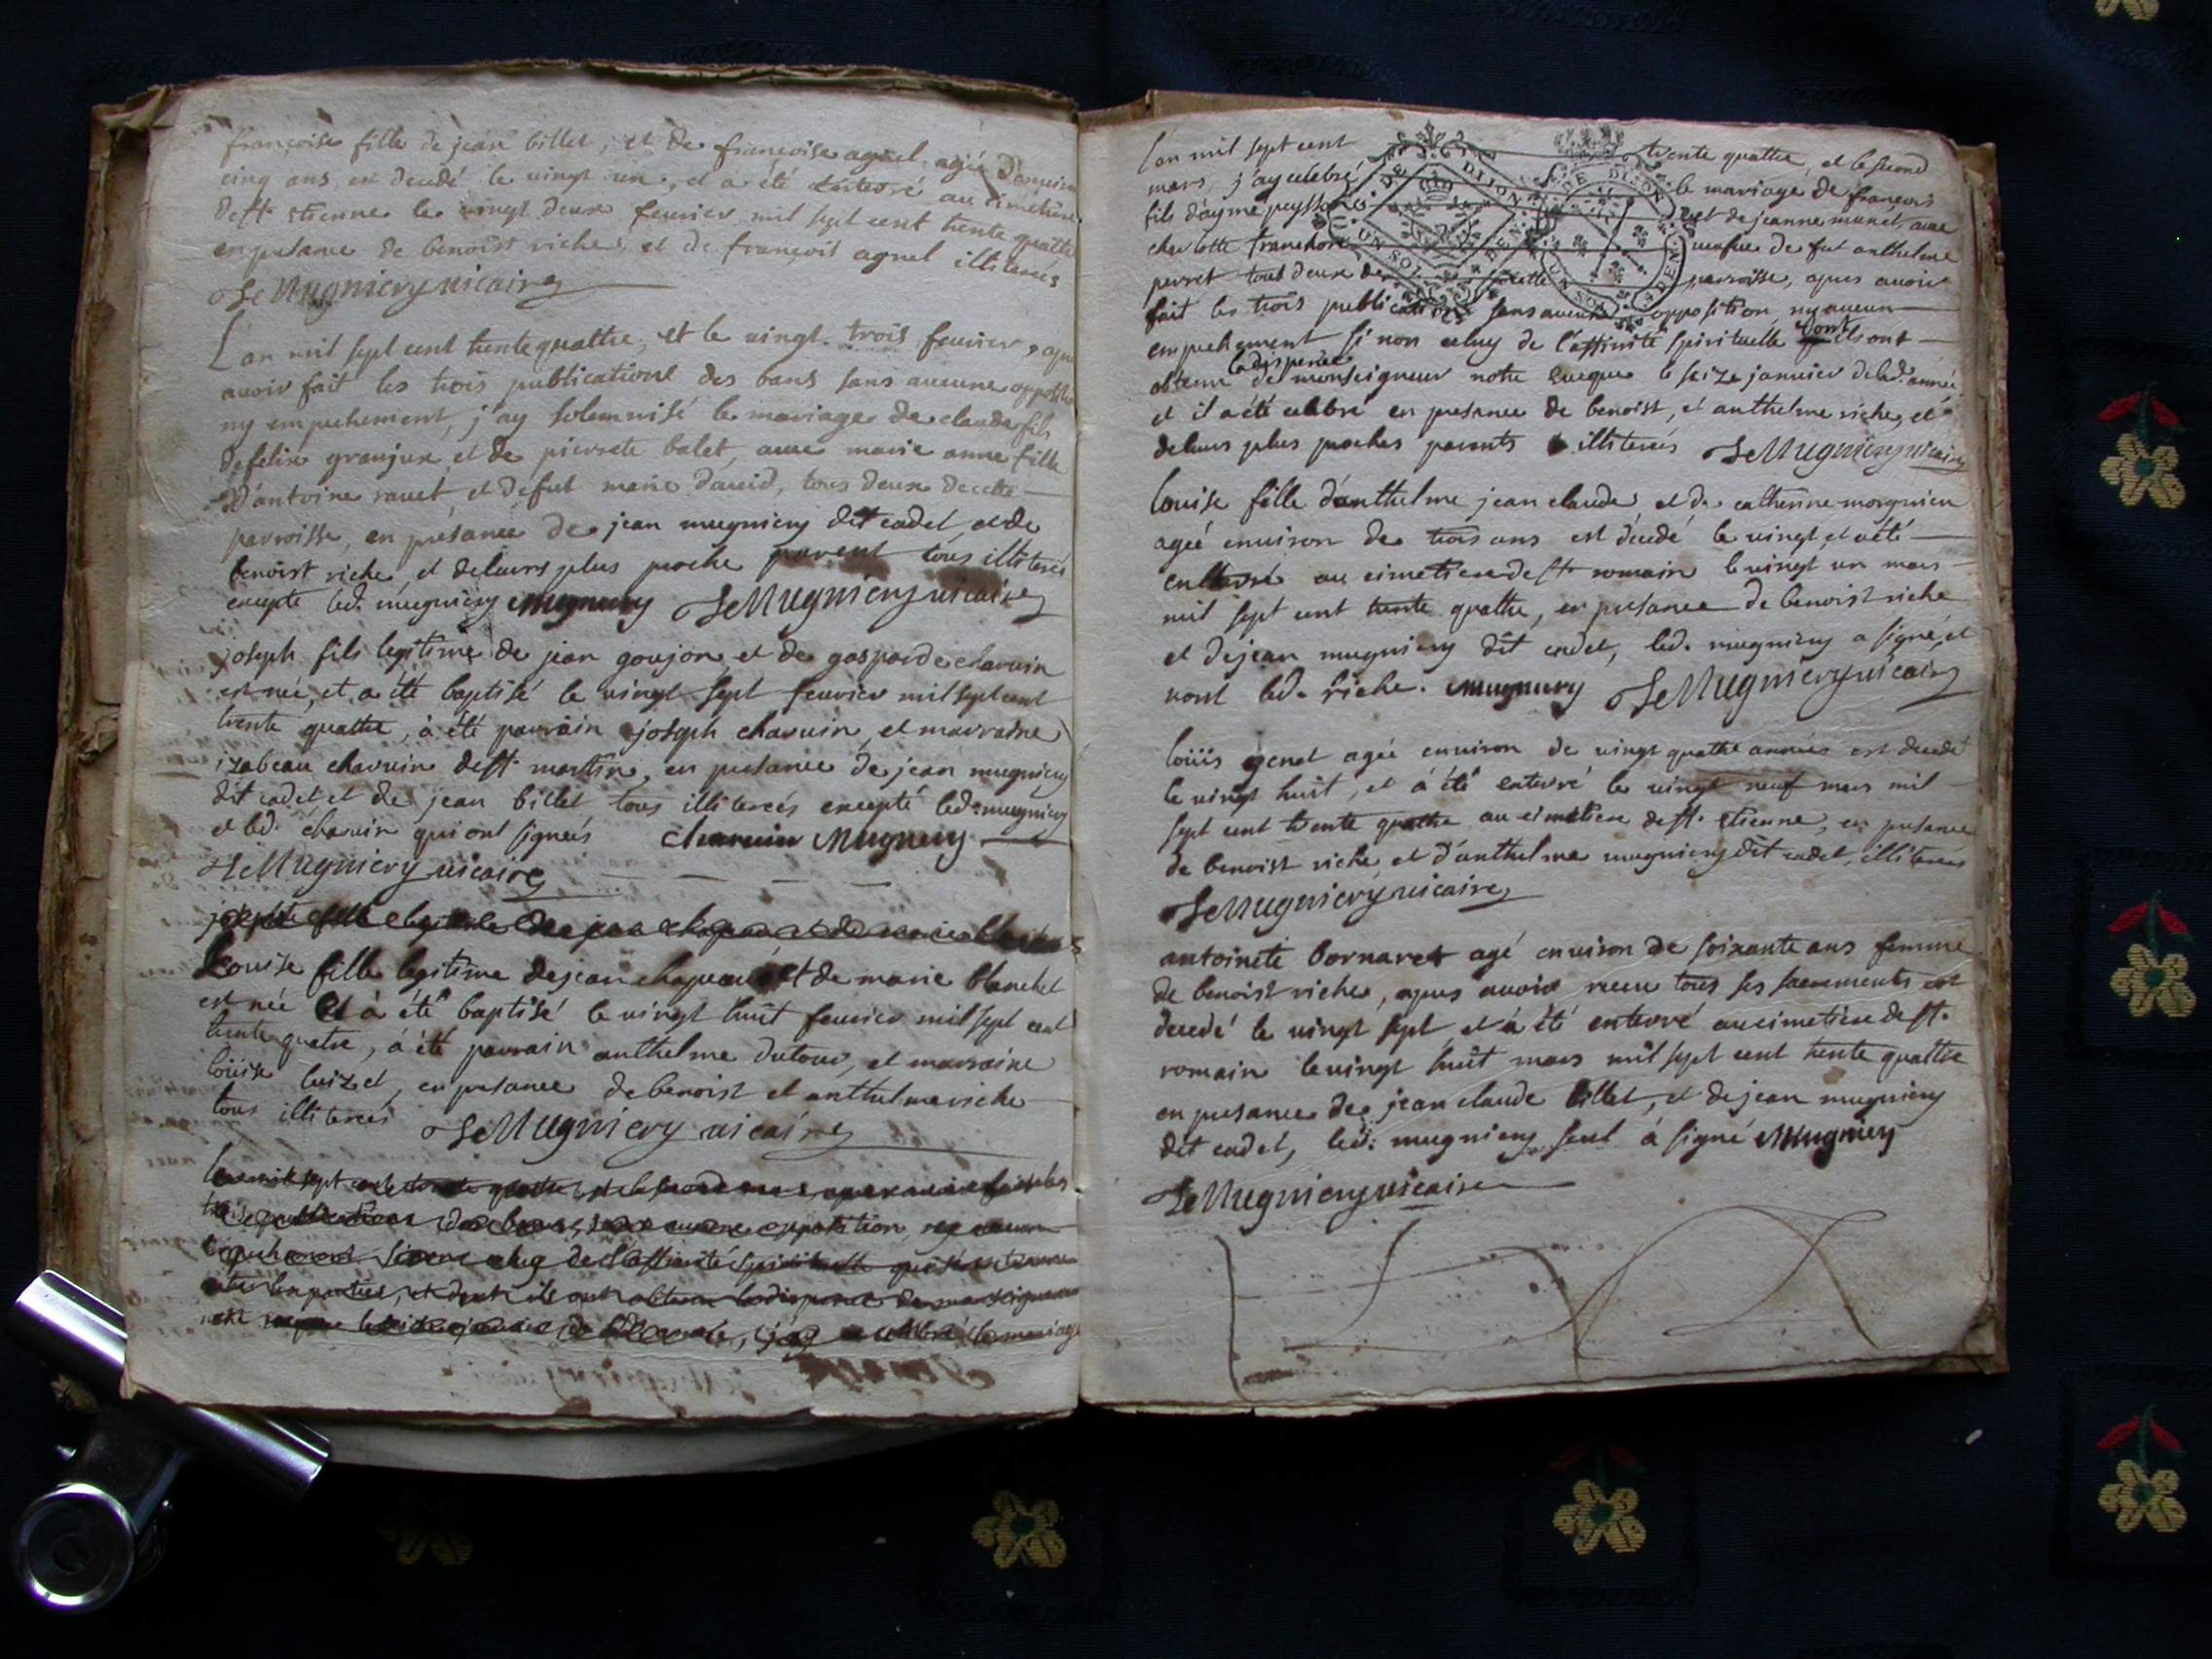 francoise fille de jean billet, et de francoise agnel agée d'environ
cinq ans est decedé le vingt un, et a été enterré au cimetiere
de st. etienne le vingt deux fevrier mil sept cent trente quattre
en presance de benoist riche, et de francois agnel illiterés
J Mugniery vicaire
L'an mil sept cent trente quattre, et le vingt trois fevrier, apres
avoir fait les trois publications des bans sans aucune opposition
ny empechement, j'ay solemnisé le mariage de claude fils
de felix granjux et de pierrete balet, avec marie anne fille
d'antoine ravet et de fut marie david, tous deux de cette
parroisse, en présance de jean mugniery dit cadet, et de
benoist riche, et de leurs plus proche parent tous illiterés
excepté led. mugniery Mugniery J Mugniery vicaire
joseph fils legitime de jean goujon et de gasparde charvin
est née, et a été baptisé le vingt sept fevrier mil sept cent
trente quattre, à été parrain joseph charvin, et marraine
izabeau charvin de st. martin, en presance de jean mugniery
dit cadet et de jean billet tous illiterés excepté led. mugniery
et led. charvin qui ont signés charvin Mugniery
J Mugniery vicaire
Louise fille legitime de jean chapeau et de marie blanchet
est née et à été baptisé le vingt huit fevrier mil sept cent
trente quatre, à été parrain anthelme dutour, et marraine
loüise luizet, en presance de benoist et anthelme riche
tous illiterés J Mugniery vicaire
L'an mil sept cent trente quattre, et le second mars, apres avoir fait les
trois publications des bans, sans aucune opposition, ny aucun
empechement sinon celuy de l'affinité spirituelle qui
entre les parties, et dont ils ont obtenu la dispence de monseigneur
notre eveque le seize janvier, j'ay celebré le mariage
L'an mil sept cent trente quattre, et le second
mars, j'ay celebré le mariage de francois
fils d'aymé peysson et de jeanne munet, avec
charlotte tranchore veufve de fut anthelme
perret tout deux de cette parroisse, apres avoir
fait les trois publications sans aucune opposition, ny aucun
empechement si non celuy de l'affinité spirituelle dont ils ont
obtenu la dispence de monseigneur notre eveque le seize janvier de lad. année
et il a été celebré en presance de benoist, et anthelme riche, et
de leurs plus proches parents illiterés J Mugniery vicaire
louise fille d'anthelme jean claude, et de catherine morgnieu
ageé environ de trois ans est decedé le vingt, et a été
enterré au cimetiere de st. romain le vingt un mars
mil sept cent trente quattre, en presance de benoist riche
et de jean mugniery dit cadet, led. mugniery a signé, et
nont led. riche. Mugniery J Mugniery vicaire
loüis genet ageé environ de vingt quattre années est decedé
le vingt huit, et à été enterré le vingt neuf mars mil
sept cent trente quattre au cimetiere de st. etienne, en presance
de benoist riche et d'anthelme mugniery dit cadet, illiterés
J Mugniery vicaire
antoinete bornaret agé environ de soixante ans femme
de benoist riche, apres avoir receu tous ses sacrements est
decedé le vingt sept, et à été enterré au cimetiere de st.
romain le vingt huit mars mil sept cent trente quattre
en presance de jean claude billet, et de jean mugniery
dit cadet, led. mugniery seul à signé Mugniery
J Mugniery vicaire